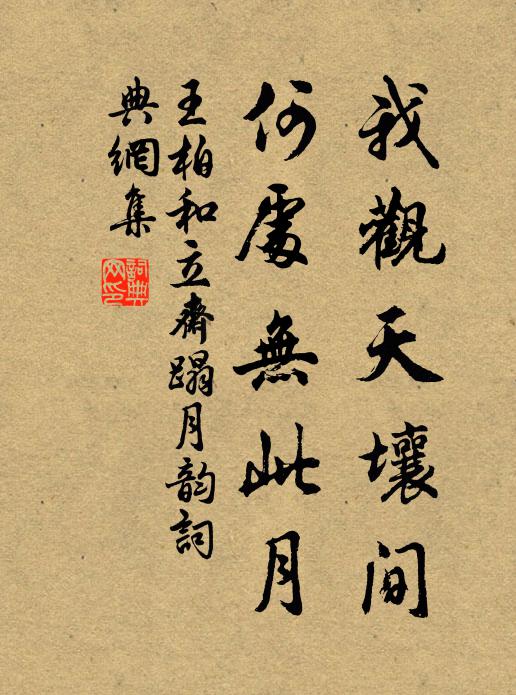 我觀天壤间
何處無此月
王柏和立齋蹋月韵詞
典網集
詞典
网印